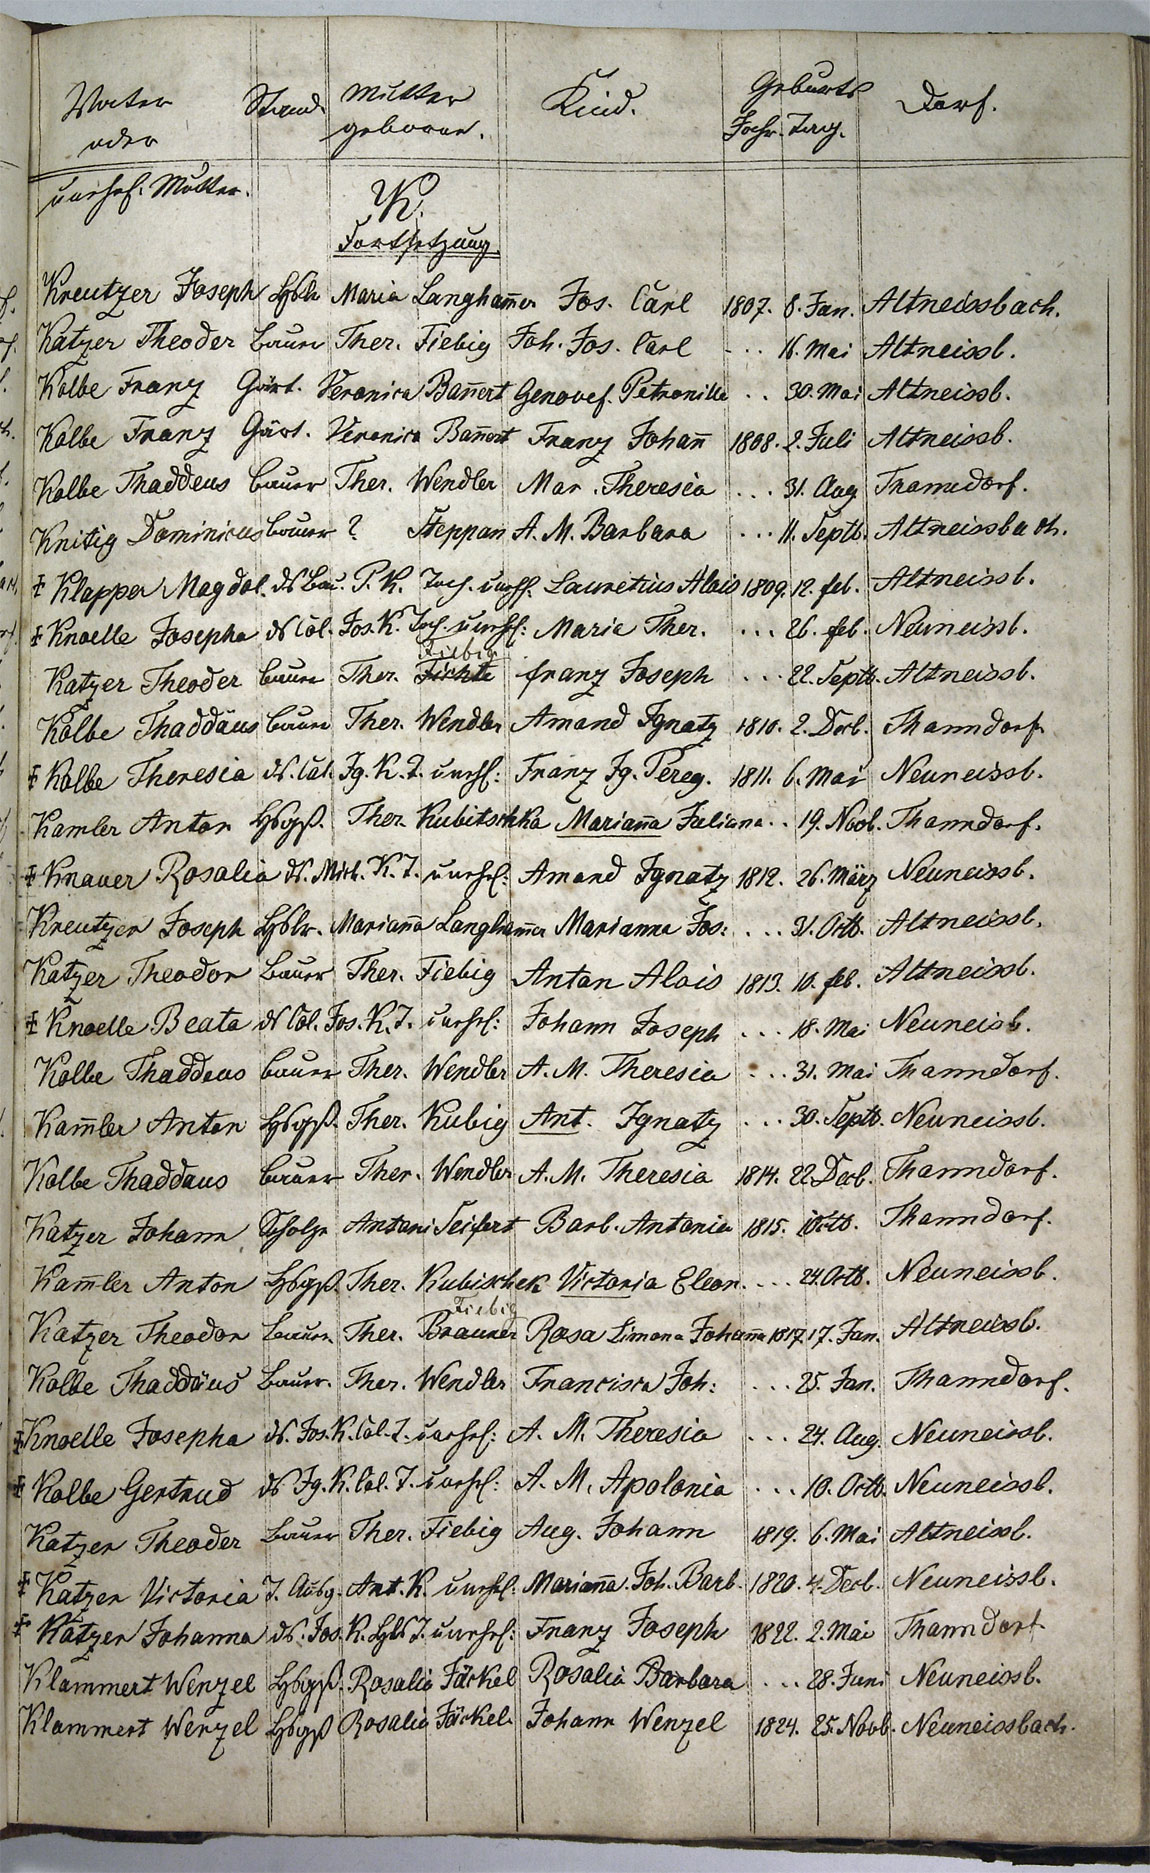 Vater Stand Mutter Kind. Geburts Dorf.
oder geborne. Jahr. Tag.
unehel. Mutter. K.
Fortsetzung.
Kreutzer Joseph Hslr Maria Langham̄er Jos. Carl 1807. 8. Jan. Altneissbach.
Katzer Theoder Bauer Ther. Fiebig Joh. Jos. Carl - .. 16. Mai Altneissb.
Kolbe Franz Gärt. Veronica Ban̄ert Genovef. Petronilla .. 30. Mai Altneissb.
Kolbe Franz Gärt. Veronica Ban̄ert Franz Johan̄ 1808. 2. Juli Altneissb.
Kolbe Thaddeus Bauer Ther. Wendler Mar. Theresia ... 31. Aug Thanndorf.
Knitig Dominicus Bauer ? Steppan A. M. Barbara ... 11. Septb. Altneissbach.
‡ Klapper Magdal. ds Bau. P. K. Toch. unehl. Lauretius Alois 1809. 12. feb. Altneissb.
‡ Knoelle Josepha ds Col. Jos. K. Toch. unehel: Maria Ther. ... 26. feb. Neuneissb.
Fiebig
Katzer Theoder Bauer Ther. Fichte franz Joseph ... 22. Septb. Altneissb.
Kolbe Thaddäus Bauer Ther. Wendler Amand Ignatz 1810. 2. Decb. Thanndorf.
‡ Kolbe Theresia ds. Col. Ig. K. T. unehl: Franz Ig. Pereg. 1811. 6. Mai Neuneissb.
Kamler Anton Hsgß. Ther. Kubitschka Marian̄a Juliana .. 19. Novb. Thanndorf.
‡ Knauer Rosalia ds. Mich. K. T. unehel: Amand Ignatz 1812. 26. März Neuneissb.
Kreutzer Joseph Hslr. Marian̄a Langham̄er Marianna Jos: ... 31. Octb. Altneissb.
Katzer Theodor Bauer Ther. Fiebig Anton Alois 1813. 10. feb. Altneissb.
‡ Knoelle Beata ds Col. Jos. K. T. unehel: Johann Joseph ... 18. Mai Neuneisb.
Kolbe Thaddeus Bauer Ther. Wendler A. M. Theresia ... 31. Mai Thanndorf.
Kam̄ler Anton Hsgß. Ther. Kubig Ant. Ignatz ... 30. Septb. Neuneissb.
Kolbe Thaddaus Bauer Ther. Wendler A. M. Theresia 1814. 22. Decb. Thanndorf.
Katzer Johann Scholze Antoni Seifert Barb. Antonia 1815. Octb. Thanndorf.
Kam̄ler Anton Hsgß. Ther. Kubischek Victoria Eleon. ... 24. Octb. Neuneissb.
Fiebig
Katzer Theodor Bauer. Ther. Brauner Rosa Simona Johan̄a 1817. 17. Jan. Altneissb.
Kolbe Thaddäus Bauer. Ther. Wendler Francisca Joh: ... 25. Jan. Thanndorf.
‡ Knoelle Josepha ds. Jos. K. Col. T. unehel: A. M. Theresia ... 24. Aug. Neuneissb.
‡ Kolbe Gertrud ds Ig. K. Col. T. unehl: A. M. Apolonia ... 10. Octb. Neuneissb.
Katzer Theoder Bauer Ther. Fiebig Aug. Johann 1819. 6. Mai Altneissb.
‡ Katzer Victoria T. Ausg. Ant. K. unehel. Marian̄a. Joh. Barb. 1820. 4. Decb. Neuneissb.
‡ Katzer Johanna ds. Jos. K. Hsl T. unehel: Franz Joseph 1822. 2. Mai Thanndorf
Klammert Wenzel Hsgß. Rosalia Jäckel Rosalia Barbara ... 28. Juni Neuneissb.
Klammert Wenzel Hsgß Rosalia Jäckel. Johann Wenzel 1824. 25. Novb. Neuneissbach.